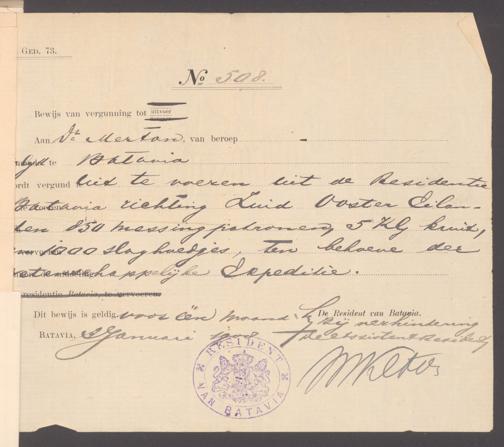 GED. 73.
No 508.
Bewijs van vergunning tot uitvoer
Aan Dr. Merton, van beroep -
te Batavia
wordt vergund uit te voeren uit de Residentie
Batavia richting Zuid Ooster Eilan-
den 850 messingpatronen, 5 KG kruit,
en 1000 slaghoedjes, ten behoeve der
wetenschappelijke Expeditie.
residentie Batavia, te vervoeren
Dit bewijs is geldig voor één maand.
De Resident van Batavia.
bij verhindering
BATAVIA, Januari 1908
De Assistent Resident
RESIDENT VAN BATAVIA